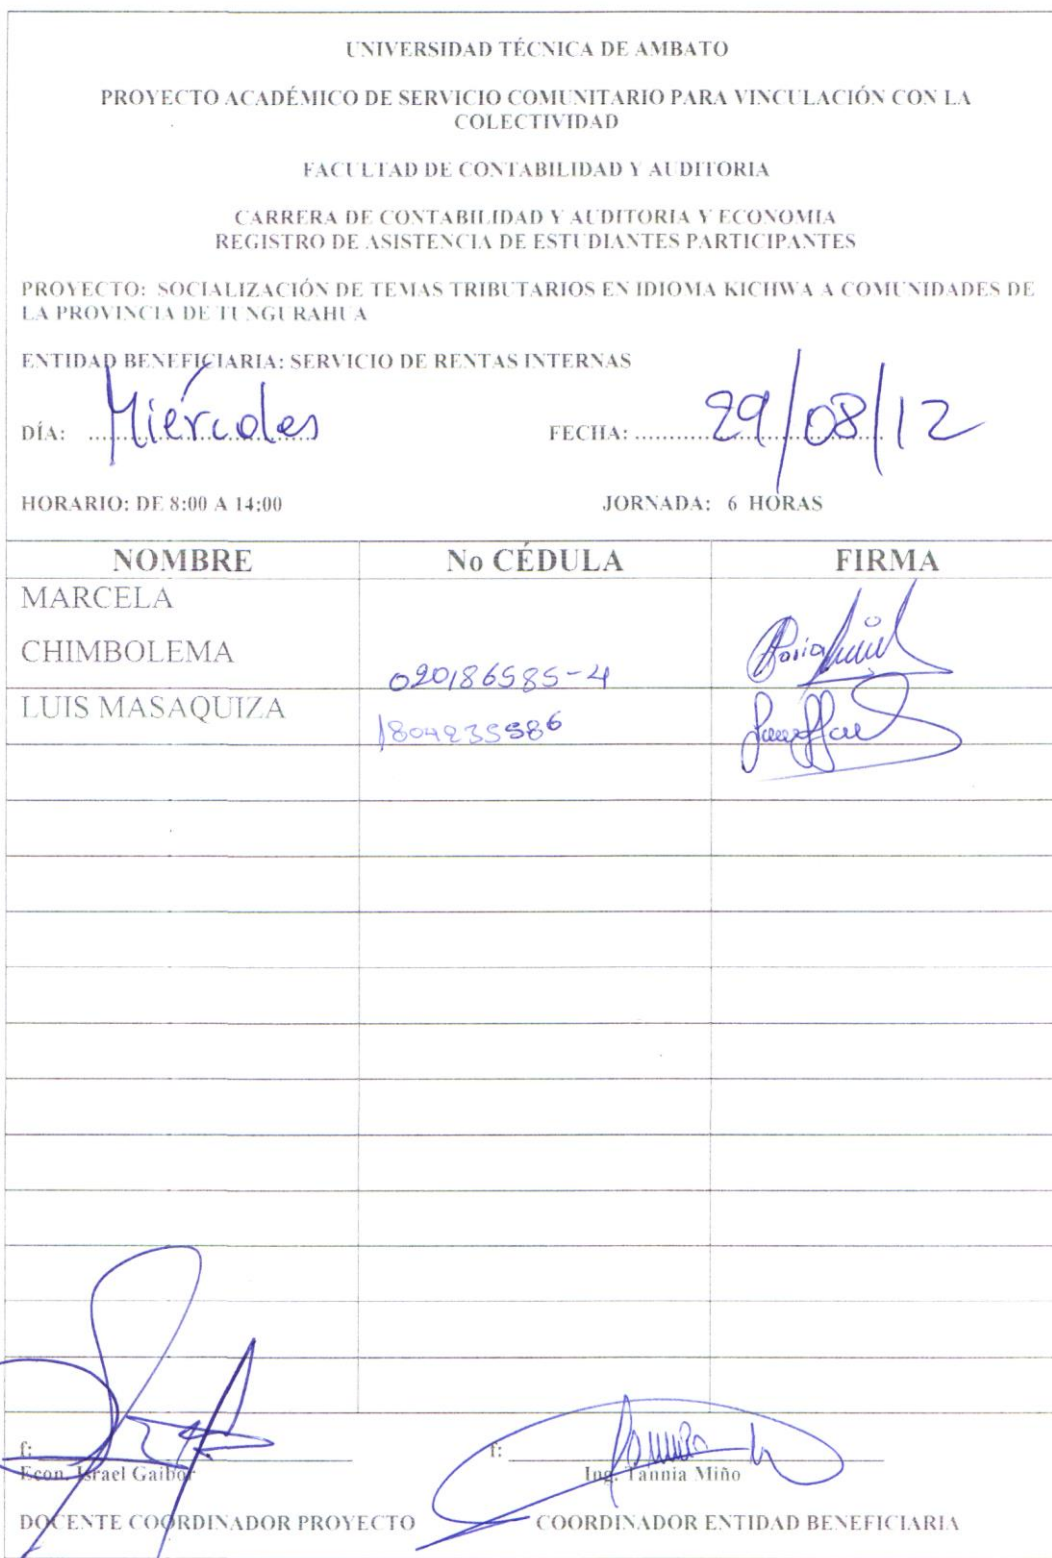 UNIVERSIDAD TÉCNICA DE AMBATO
PROYECTO ACADÉMICO DE SERVICIO COMUNITARIO PARA VINCULACIÓN CON LA
COLECTIVIDAD
FACULTAD DE CONTABILIDAD Y AUDITORIA
CARRERA DE CONTABILIDAD Y AUDITORIA Y ECONOMIA
REGISTRO DE ASISTENCIA DE ESTUDIANTES PARTICIPANTES
PROYECTO: SOCIALIZACIÓN DE TEMAS TRIBUTARIOS EN IDIOMA KICHWA A COMUNIDADES DE
LA PROVINCIA DE TUNGURAHUA
ENTIDAD BENEFICIARIA: SERVICIO DE RENTAS INTERNAS
DÍA: Miércoles FECHA: 29/08/12
HORARIO: DE 8:00 A 14:00 JORNADA: 6 HORAS
NOMBRE No CÉDULA FIRMA
MARCELA
CHIMBOLEMA
020186585-4
LUIS MASAQUIZA 1804235586
f: f:
Econ. Israel Gaibor Ing. Tannia Miño
DOCENTE COORDINADOR PROYECTO COORDINADOR ENTIDAD BENEFICIARIA